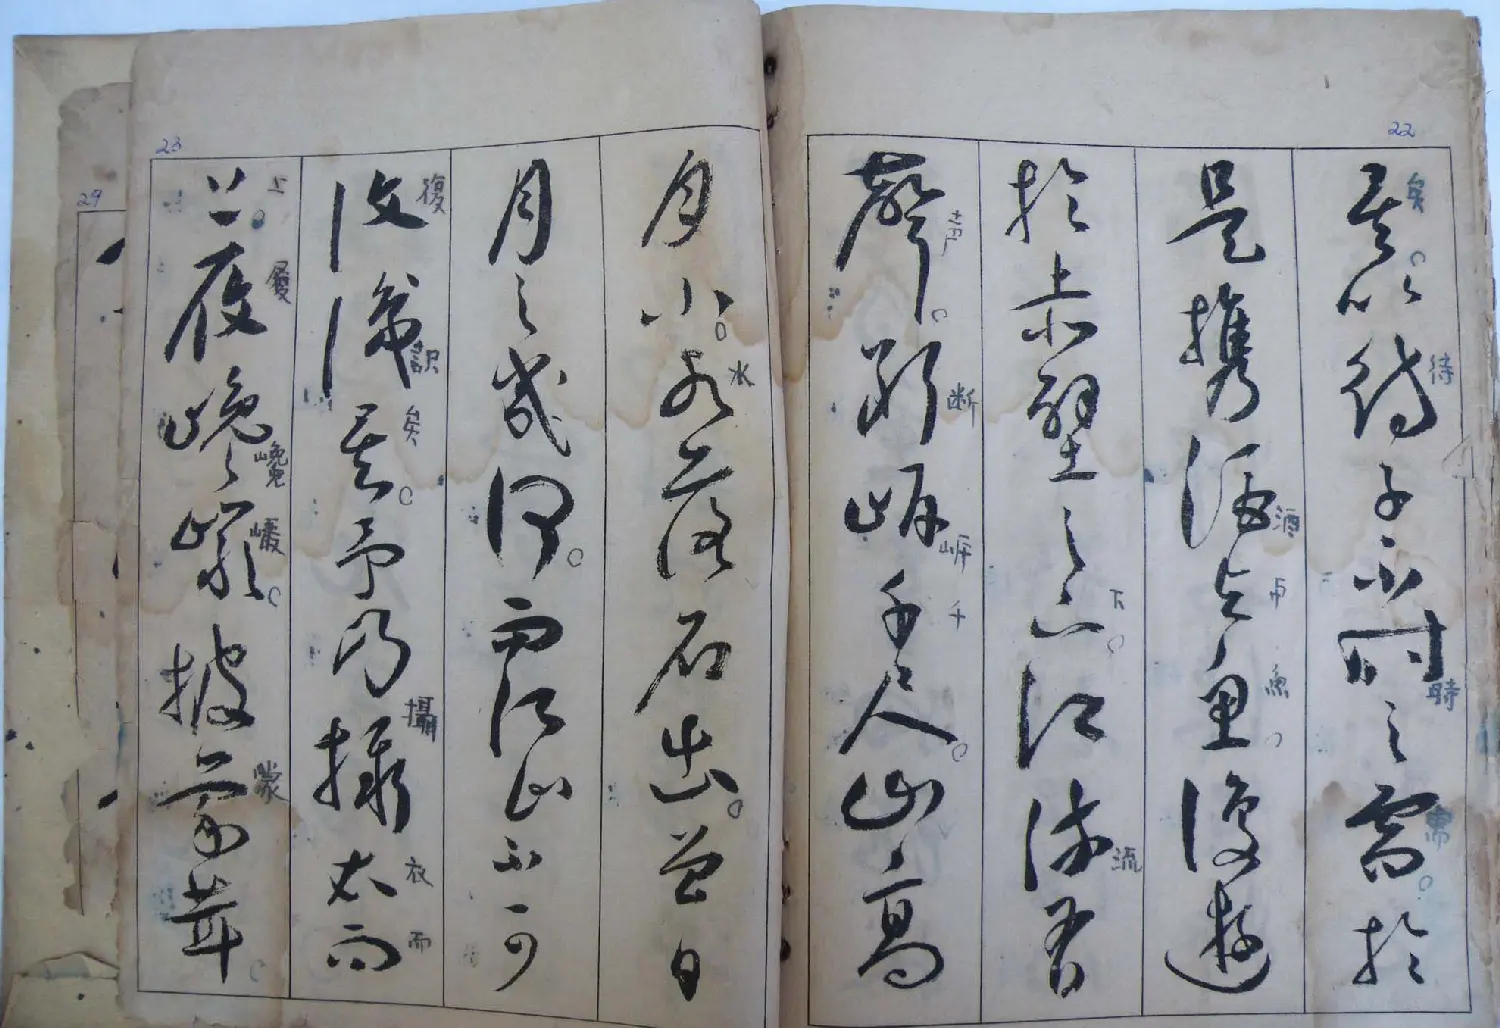 22
矣。以待子不時之需。於
是攜酒與魚。復遊
於赤壁之下。江流有
聲。斷岸千尺。山高
矣 待 時 需
酒 魚
下 流
断 岍 千
23
月小。水落石出。曾日
月之幾何。而江山不可
復識矣。予乃攝衣而
上。履巉巖。披蒙茸。
水
復 識 矣 攝 衣 而
上 履 巉 蒙
29